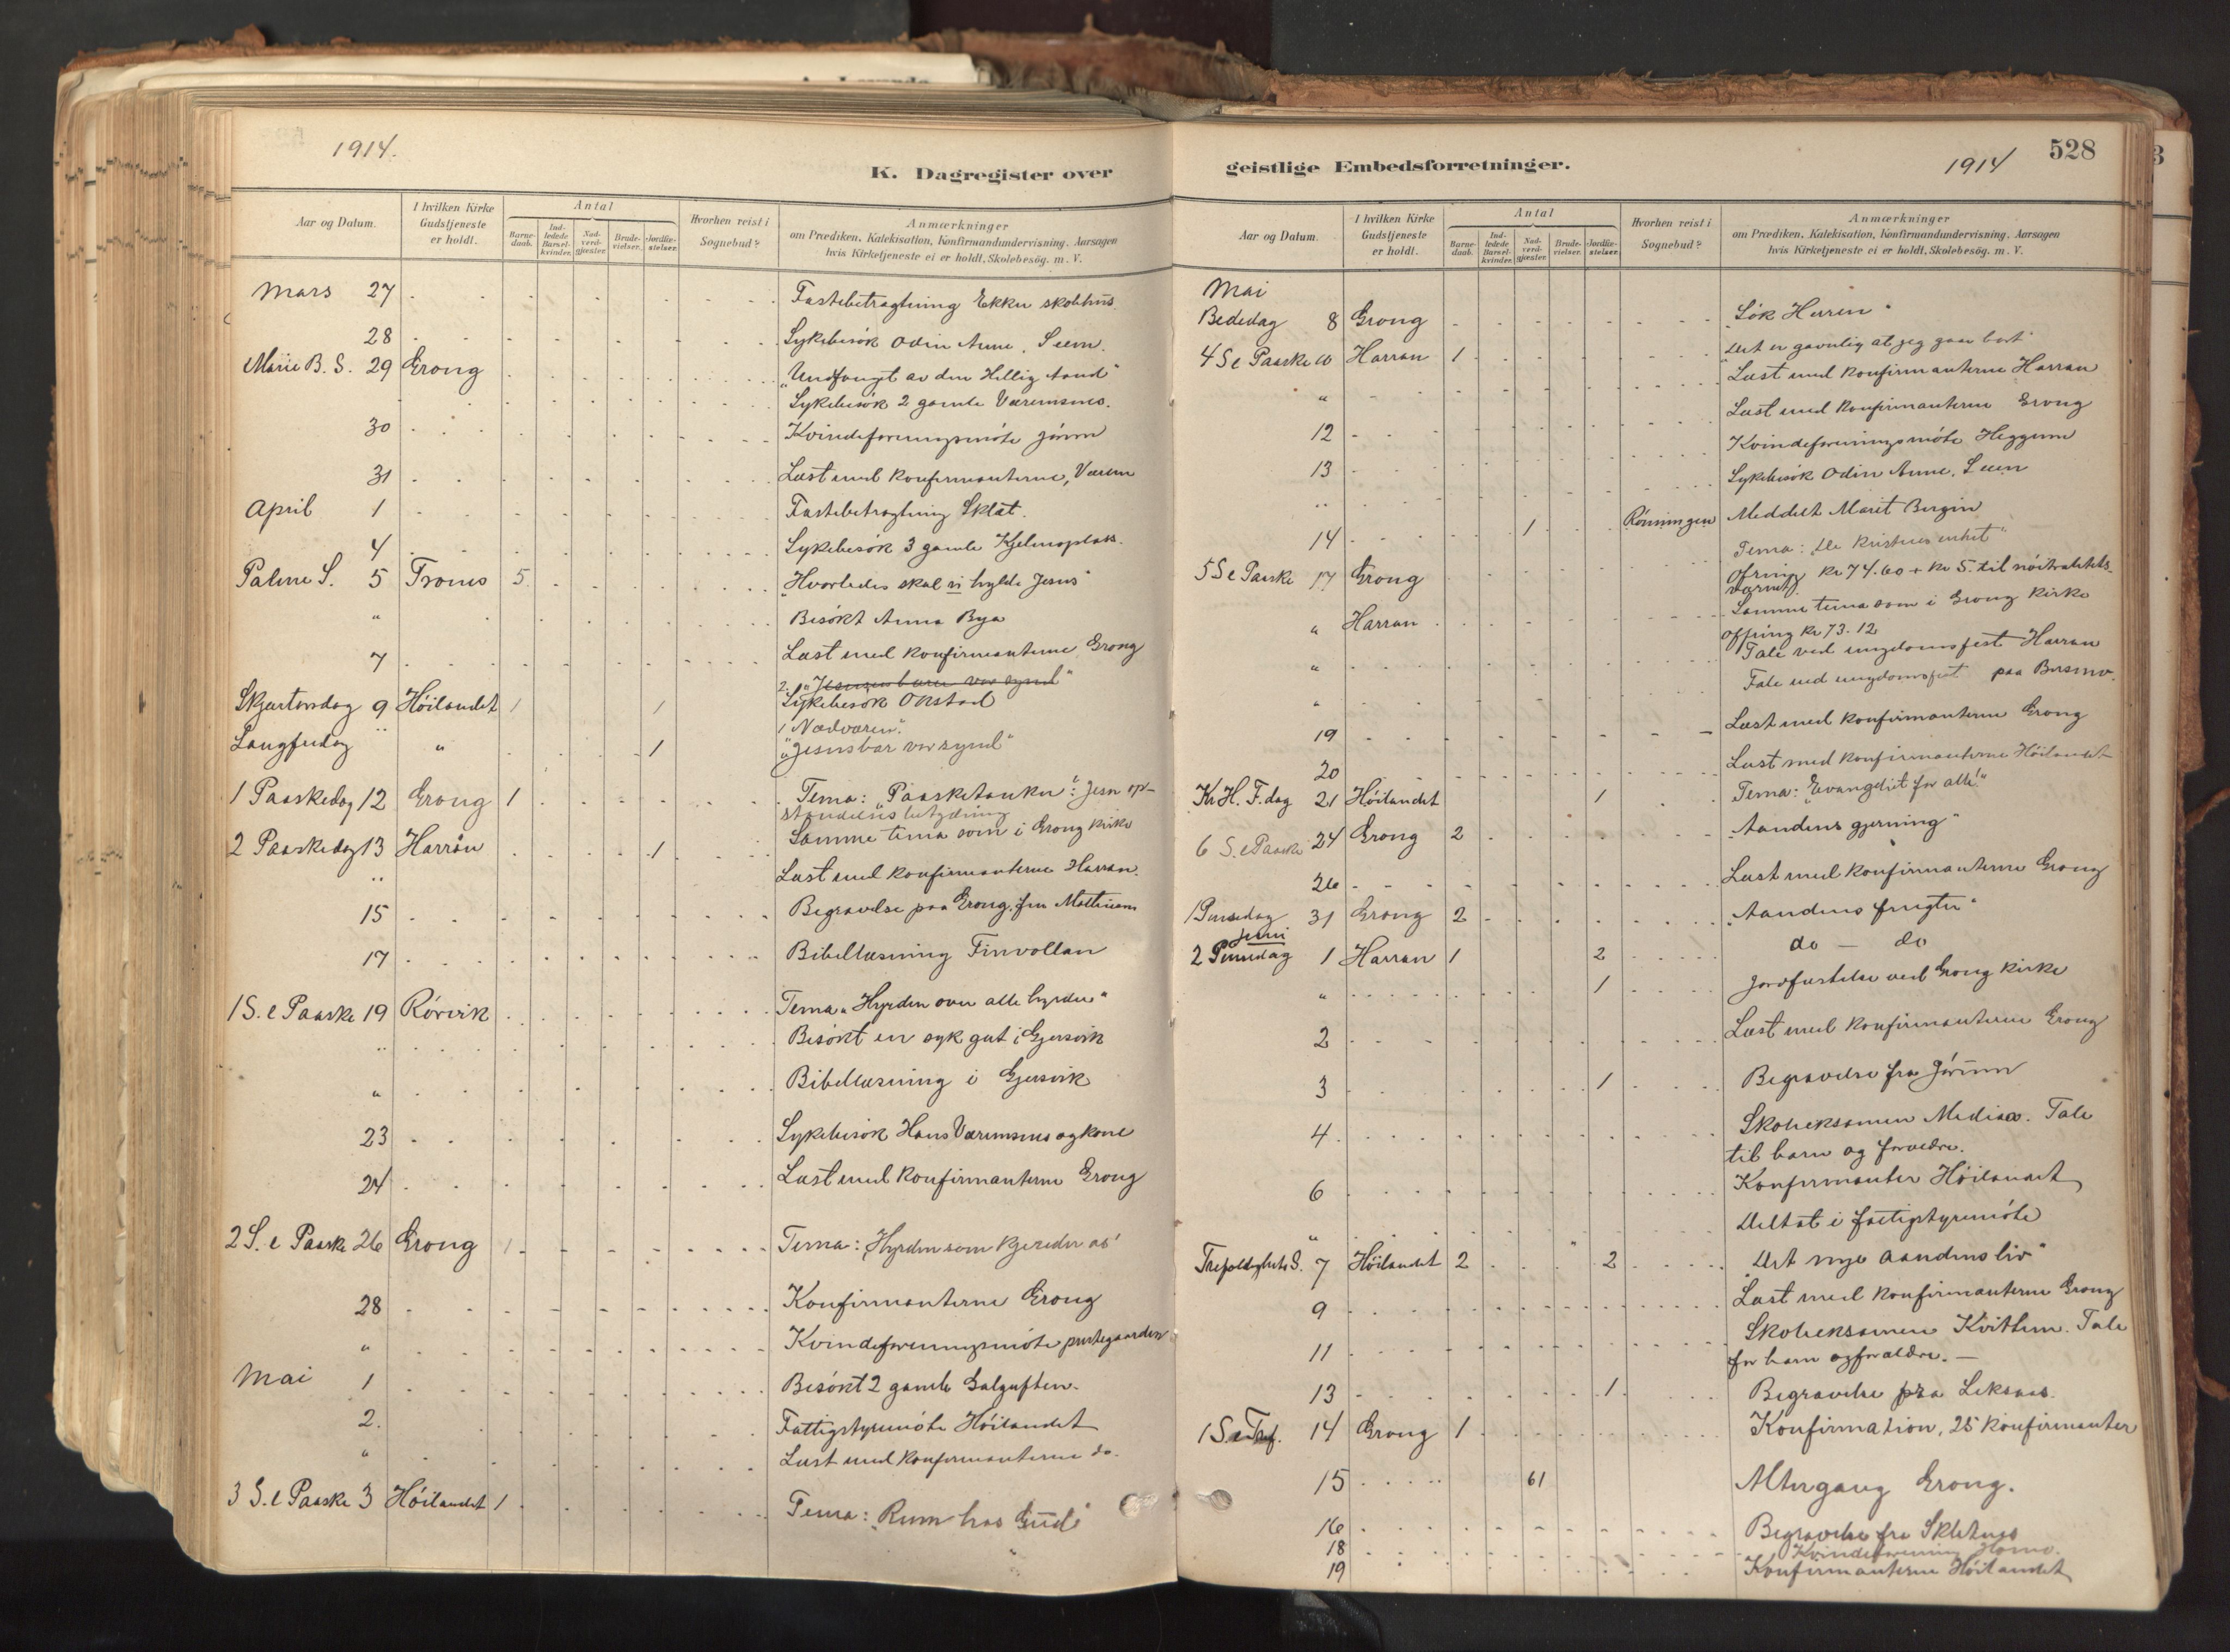 1914.
K. Dagregister over
Aar og Datum.
I hvilken Kirke Gudstjeneste er holdt.
Antal
Barne-daab.
Ind-ledede Barsel-kvinder.
Nad-verd-gjæster.
Brude-vielser.
Jordfæ-stelser.
Hvorhen reist i Sognebud?
Anmærkninger
om Prædiken, Katekisation, Konfirmandundervisning, Aarsagen
hvis Kirketjeneste ei er holdt, Skolebesøg. m. V.
Mars 27 Fastebetragtning Ekker skolehus
28 Sykebesök Odin Anne. Seem.
Marie B. S. 29 Grong "Undfanget av den Hellig Aand"
"Sykebesök 2 gamle Væremsnes.
30 Kvindeforeningsmöte Jörem
31 Læst med konfirmanterne, Værem
April 1 Fastebetragtning Sklæt.
4 Sykebesök 3 gamle Kjelmoplass.
Palme S. 5 Trones 5 "Hvorledes skal vi hylde Jesus"
" Besökt Anna Bya
7 Læst med konfirmanterne Grong
Skjærtorsdag 9 Höilandet 1 1 Sykebesök Okstad
1 Nadværen".
Langfredag " 1 "Jesus bar vor synd"
1 Paaskedag 12 Grong 1 Tema: "Paasketanker": Jesu op-
standelses betydning
2 Paaskedag 13 Harran 1 Samme tema som i Grong kirke
" Læst med konfirmanterne Harran.
15 Begravelse paa Grong, fru Mathiesen
17 Bibellæsning Finvollan
1 S. e Paaske 19 Rörvik Tema "Hyrden over alle hyrder"
" Besökt en syk gut i Gjersvik
" Bibellæsning i Gjersvik
23 Sykebesök Hans Væremsnes og kone
24 Læst med konfirmanterne Grong
2 S. e Paaske 26 Grong 1 Tema: "Hyrden som kjender os"
28 Konfirmanterne Grong
" Kvindeforeningsmöte prestegaarden
Mai 1 Besökt 2 gamle Galguften.
2. Fattigstyremöte Höilandet
" Læst med konfirmanterne do.
3 S. e Paaske 3 Höilandet 1 Tema: "Rum hos Gud"
geistlige Embedsforretninger.
1914
528
Aar og Datum.
I hvilken Kirke Gudstjeneste er holdt.
Antal
Barne-daab.
Ind-ledede Barsel-kvinder.
Nad-verd-gjæster.
Brude-vielser.
Jordfæ-stelser.
Hvorhen reist i Sognebud?
Anmærkninger
om Prædiken, Katekisation, Konfirmandundervisning, Aarsagen
hvis Kirketjeneste ei er holdt, Skolebesøg. m. V.
Mai
Bededag 8 Grong "Sök Herren"
4 S e Paaske 10 Harran 1 "Det er gavnlig at jeg gaar bort"
Læst med konfirmanterne Harran
" Læst med konfirmanterne Grong
12 Kvindeforeningsmöte Heggum
13 Sykebesök Odin Anne, Seem
" 1 Rönningen Meddelt Marit Bergin
14
Tema: "De kristnes enhet"
5 S e Paaske 17 Grong Ofring kr 74.60 + kr 5. til nöitralitets-
værnet.
" Harran Samme tema som i Grong kirke
Offring kr 73.12
" Tale ved ungdomsfest Harran
" Tale ved ungdomsfest paa Bersmo.
19 Læst med konfirmanterne Grong
20 Læst med konfirmanterne Höilandet
Kr. H. F. dag 21 Höilandet 1 Tema: "Evangeliet for alle!"
6 S. e Paaske 24 Grong 2 "Aandens gjerning"
26 Læst med konfirmanterne Grong
1 Pinsedag 31 Grong 2 "Aandens frugter"
Juni
2 Pinsedag 1 Harran 1 2 do — do
" 1 Jordfæstelse ved Grong kirke
2 Læst med konfirmanterne Grong
3 1 Begravelse fra Jörum
4 Skoleeksamen Mediaa. Tale
til barn og forældre.
6 Konfirmanter Höilandet
" Deltat i fattigstyremöte
Trefoldighets S. 7 Höilandet 2 2 "Det nye aandens liv"
9 Læst med konfirmanterne Grong
11 Skoleeksamen Kvittem. Tale
for barn og forældre. —
13 1 Begravelse fra Leksaas.
1 S. e Tref. 14 Grong 1 Konfirmation, 25 konfirmanter
15 61 Altergang Grong.
16 Begravelse fra Skletnes
18 Kvindeforening Homo.
19 Konfirmanterne Höilandet